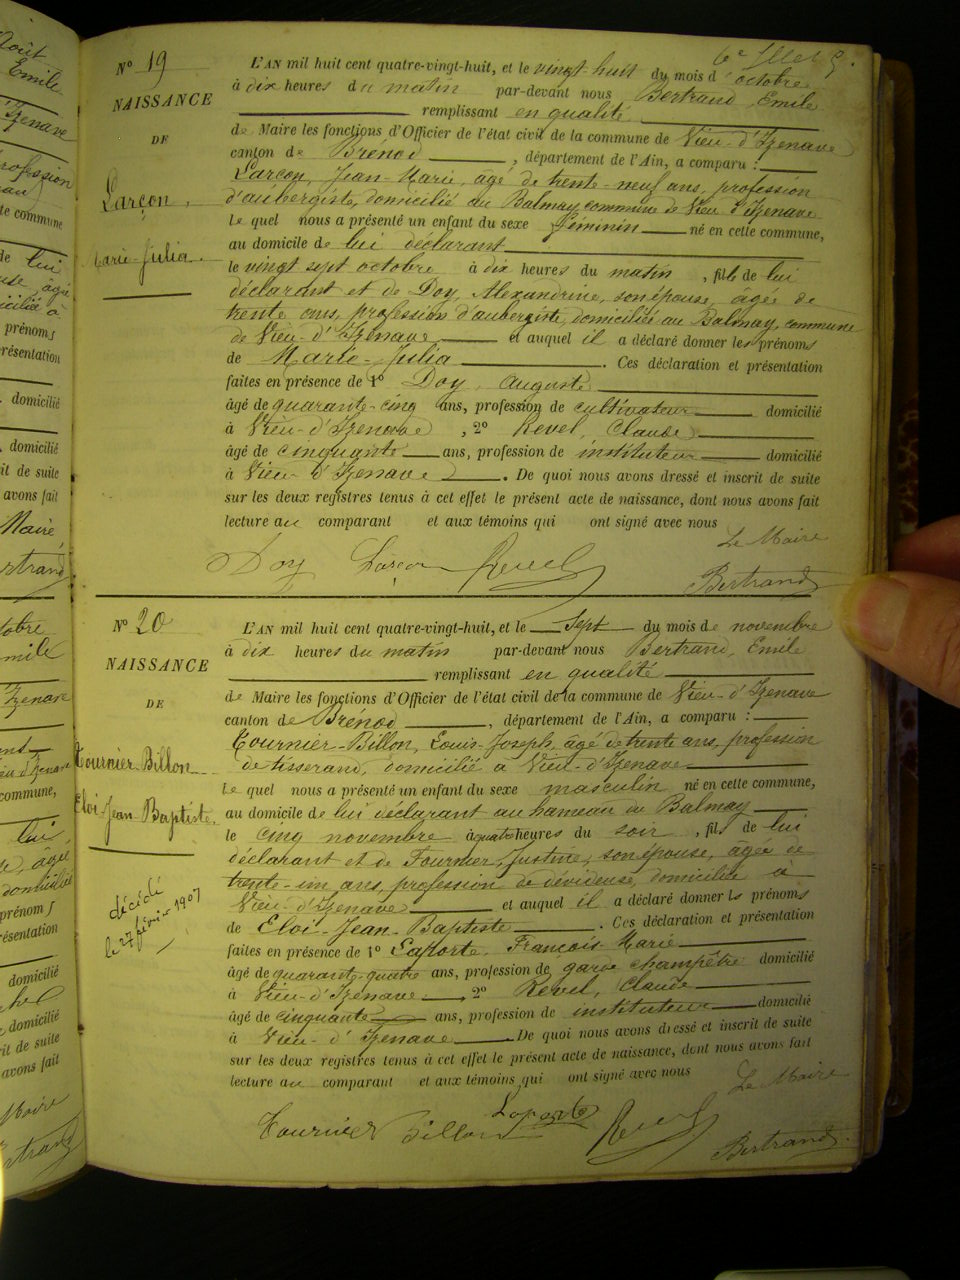 6e
N° 19
NAISSANCE
DE
Larçon,
Marie-Julia.
L'AN mil huit cent quatre-vingt-huit, et le vingt-huit du mois d'octobre
à dix heures du matin par-devant nous Bertrand, Emile
remplissant en qualité
de Maire les fonctions d'Officier de l'état civil de la commune de Vieu-d'Izenave
canton de Brénod, département de l'Ain, a comparu :
Larçon, Jean-Marie, âgé de trente-neuf ans, profession
d'aubergiste, domicilié au Balmay, commune de Vieu d'Izenave
Le quel nous a présenté un enfant du sexe féminin né en cette commune,
au domicile de lui déclarant
le vingt sept octobre à dix heures du matin, fils de lui
déclarant et de Doy, Alexandrine, son épouse, âgée de
trente ans, profession d'aubergiste, domiciliée au Balmay, commune
de Vieu-d'Izenave et auquel il a déclaré donner les prénoms
de Marie-Julia. Ces déclaration et présentation
faites en présence de 1° Doy, Auguste
âgé de quarante-cinq ans, profession de cultivateur domicilié
à Vieu-d'Izenave, 2° Revel, Claude
âgé de cinquante ans, profession de instituteur domicilié
à Vieu-d'Izenave. De quoi nous avons dressé et inscrit de suite
sur les deux registres tenus à cet effet le présent acte de naissance, dont nous avons fait
lecture au comparant et aux témoins qui ont signé avec nous
Le Maire
Doy Larçon Revel Bertrand
N° 20
NAISSANCE
DE
Tournier-Billon
Eloi-Jean-Baptiste,
décédé
le 27 février 1907
L'AN mil huit cent quatre-vingt-huit, et le Sept du mois de novembre
à dix heures du matin par-devant nous Bertrand, Emile
remplissant en qualité
de Maire les fonctions d'Officier de l'état civil de la commune de Vieu-d'Izenave
canton de Brénod, département de l'Ain, a comparu :
Tournier-Billon, Louis-Joseph, âgé de trente ans, profession
de tisserand, domicilié à Vieu-d'Izenave
Le quel nous a présenté un enfant du sexe masculin né en cette commune,
au domicile de lui déclarant au hameau du Balmay
le cinq novembre à quatre heures du soir, fils de lui
déclarant et de Fournier, Justine, son épouse, âgée de
trente-un ans, profession de dévideuse, domiciliée à
Vieu-d'Izenave et auquel il a déclaré donner les prénoms
de Eloi-Jean-Baptiste. Ces déclaration et présentation
faites en présence de 1° Laporte, François Marie
âgé de quarante-quatre ans, profession de garde champêtre domicilié
à Vieu-d'Izenave, 2° Revel, Claude
âgé de cinquante ans, profession de instituteur domicilié
à Vieu-d'Izenave. De quoi nous avons dressé et inscrit de suite
sur les deux registres tenus à cet effet le présent acte de naissance, dont nous avons fait
lecture au comparant et aux témoins qui ont signé avec nous
Le Maire
Tournier Billon Laporte Revel Bertrand